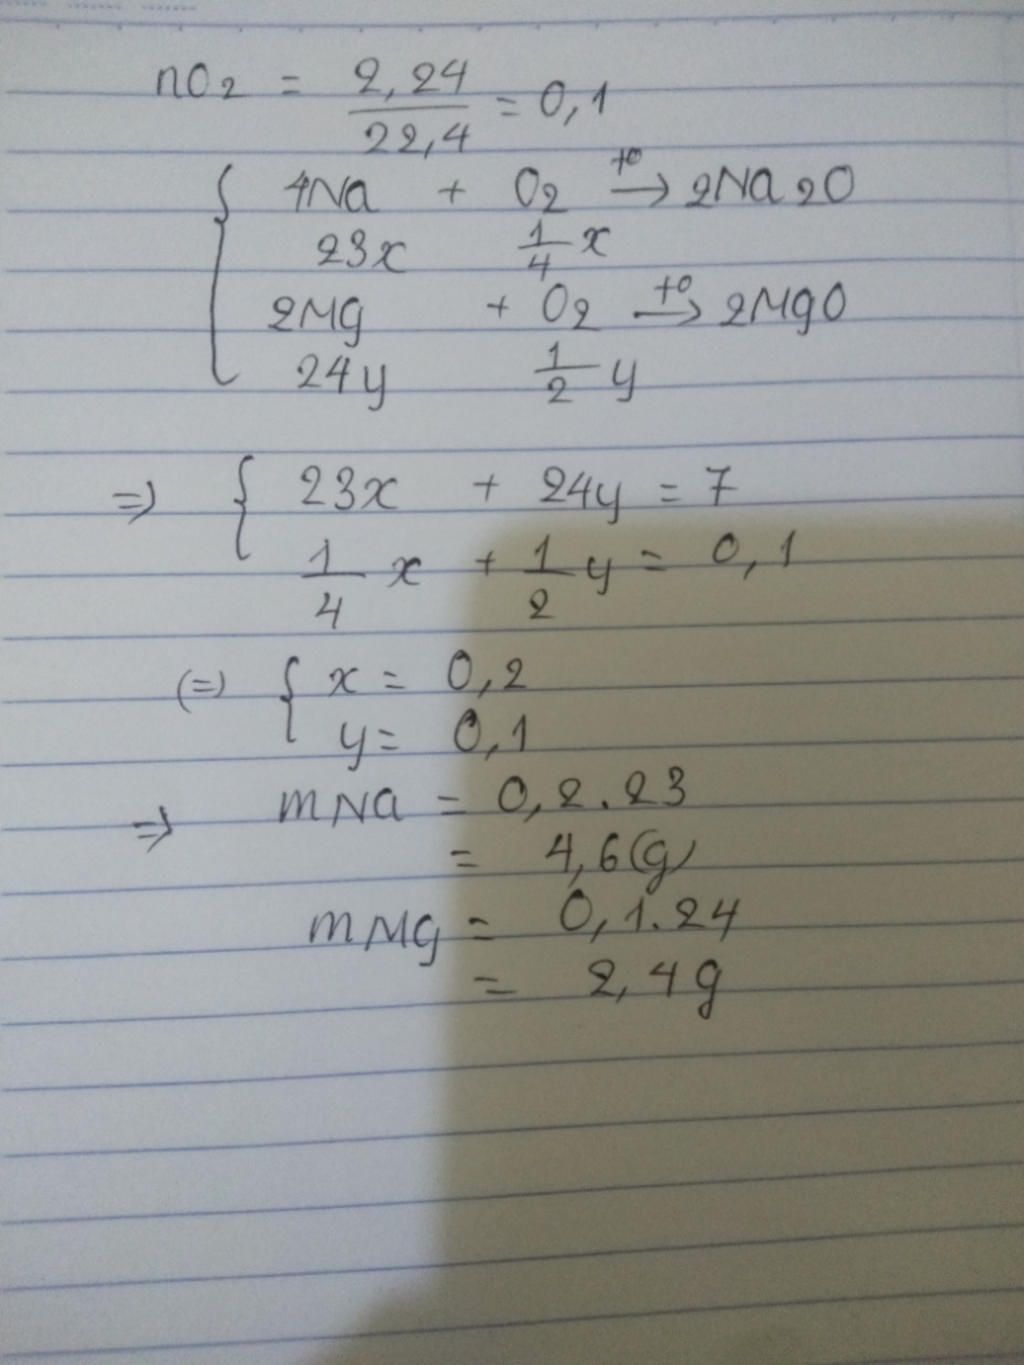 nO2 = 2,24 / 22,4 = 0,1
4Na + O2 →(t°) 2Na2O
23x 1/4 x
2Mg + O2 →(t°) 2MgO
24y 1/2 y
=> { 23x + 24y = 7
1/4 x + 1/2 y = 0,1
(=) { x = 0,2
y = 0,1
=> mNa = 0,2.23
= 4,6(g)
mMg = 0,1.24
= 2,4g